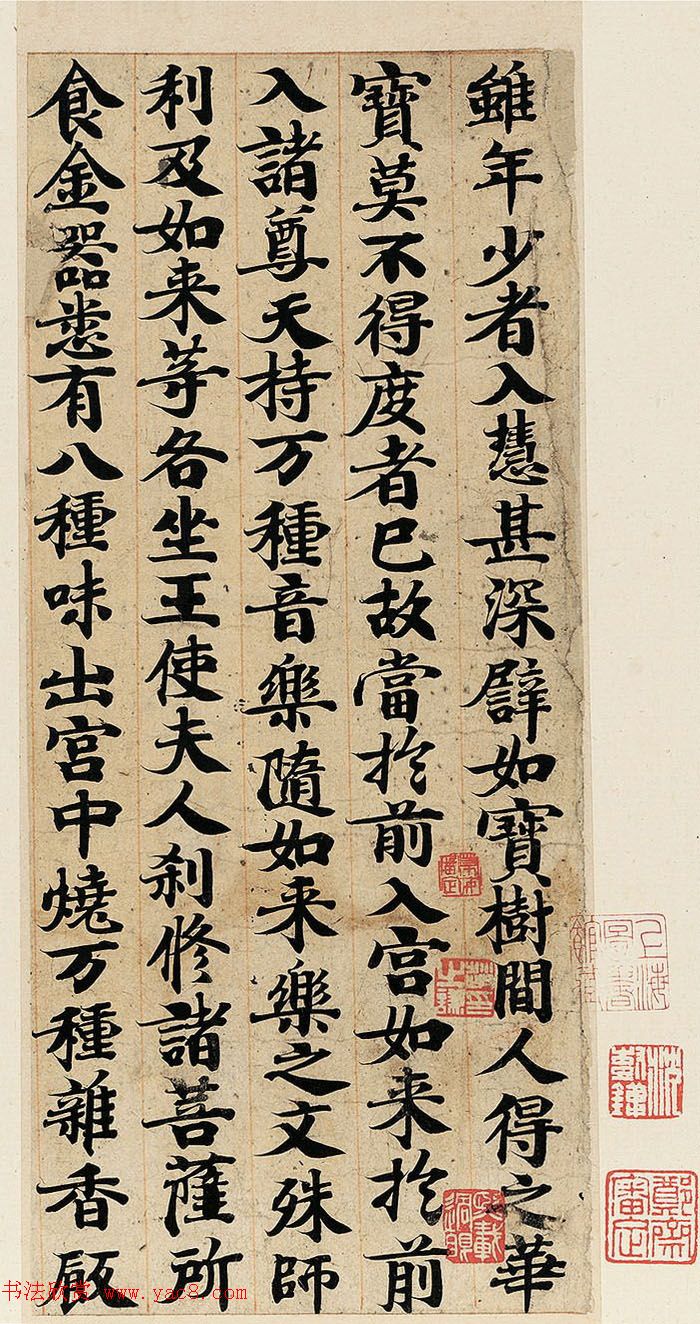 雖年少者入慧甚深譬如寶樹間人得之華
寶莫不得度者已故當於前入宮如来於前
入諸尊天持万種音樂隨如来樂之文殊師
利及如来䓁各坐王使夫人刹修諸菩薩所
食金器悉有八種味出宮中燒万種雜香殿
上海圖書館藏
鄭齋審定
书法欣赏 www.yac8.com